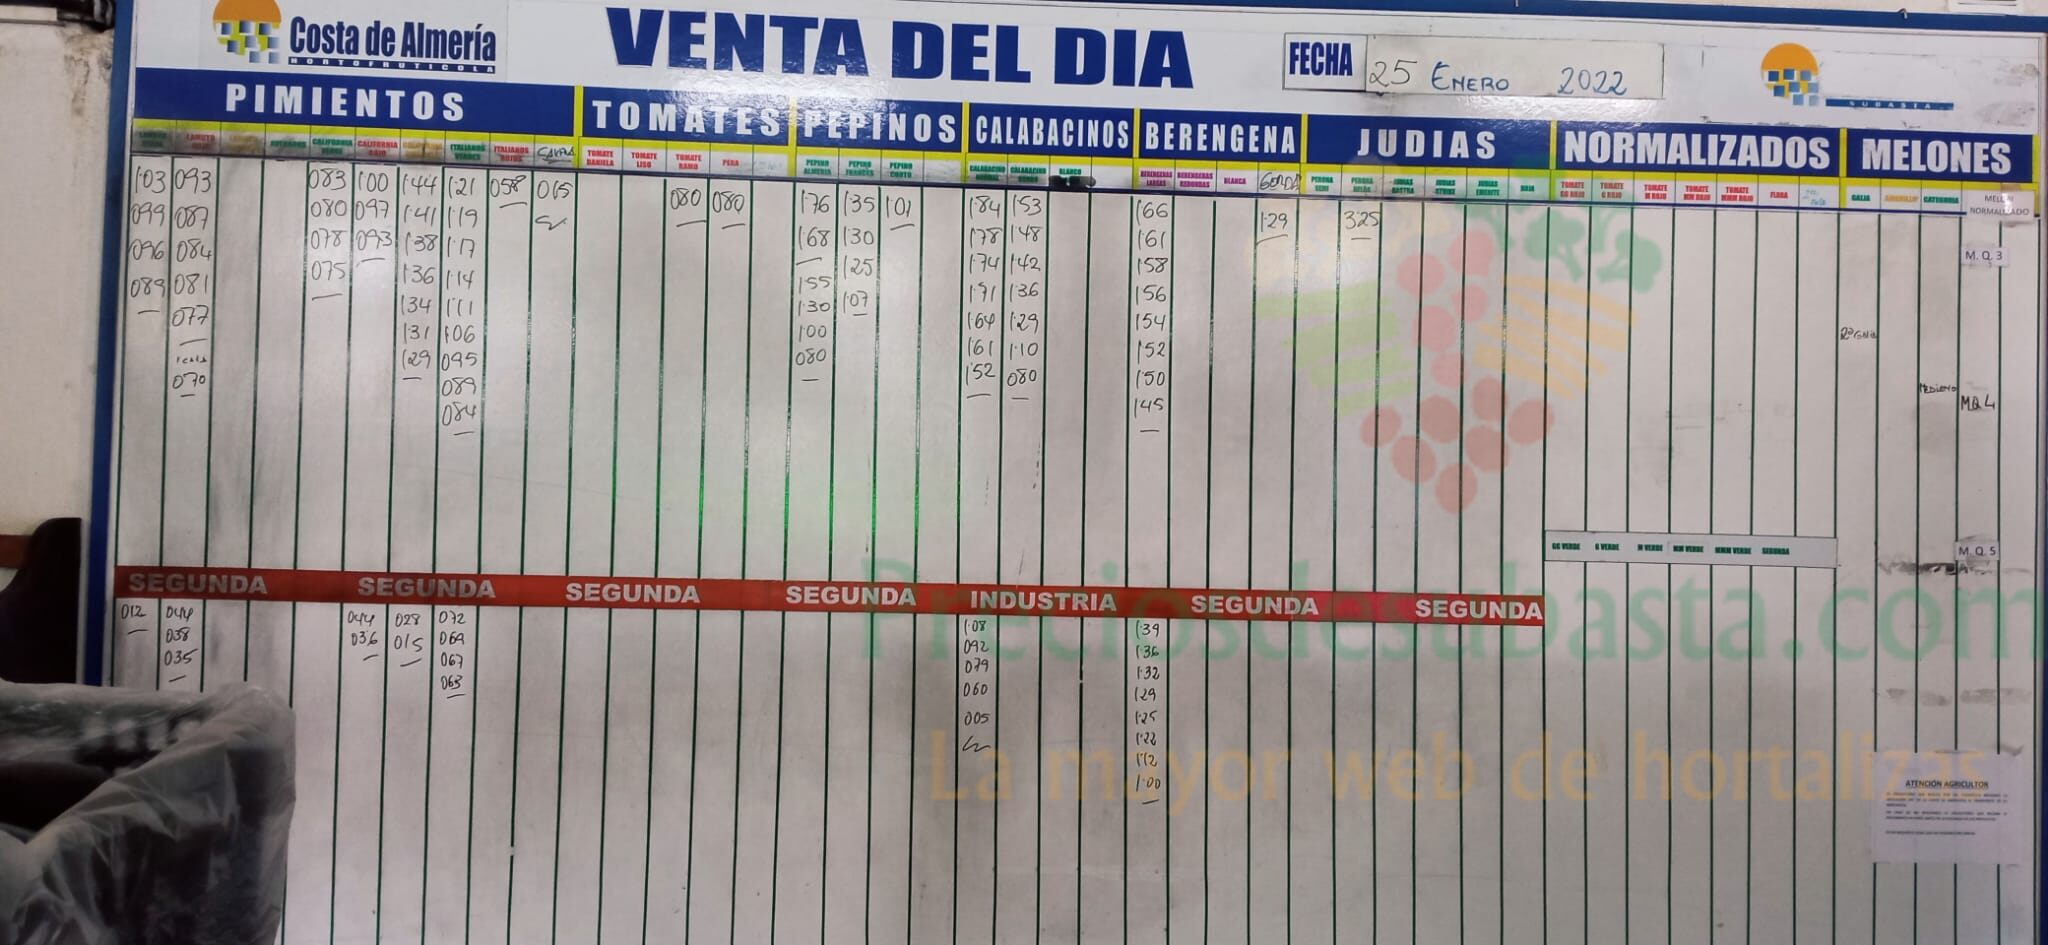 Costa de Almería
HORTOFRUTICOLA
VENTA DEL DIA
FECHA
25 ENERO 2022
SUBASTA
PIMIENTOS TOMATES PEPINOS CALABACINOS BERENGENA JUDIAS NORMALIZADOS MELONES
LAMUYO ROJO CALIFORNIA CALIFORNIA ROJO ITALIANOS VERDES ITALIANOS ROJOS TOMATE DANIELA TOMATE LISO TOMATE RAMO PERA PEPINO ALMERIA PEPINO FRANCES PEPINO CORTO BLANCO BERENGENAS LARGAS BERENGENAS REDONDAS BLANCA GORDA PERONA SEMI PERONA ROJA TOMATE GG ROJO TOMATE G ROJO TOMATE M ROJO TOMATE MM ROJO TOMATE MMM ROJO GALIA AMARILLO CATEGORIA MELON NORMALIZADO
1.03 093 083 1.00 1.44 1.21 058 065 080 080 1.76 1.35 1.01 1.84 1.53 1.66 1.29 3.25
099 087 080 097 1.41 1.19 1.68 1.30 1.78 1.48 1.61
096 084 078 093 1.38 1.17 1.55 1.25 1.74 1.42 1.58
089 081 075 1.36 1.14 1.30 1.07 1.71 1.36 1.56
077 1.34 1.11 1.00 1.64 1.29 1.54
1.31 1.06 080 1.61 1.10 1.52
070 1.29 095 1.52 080 1.50
089 1.45
084
M.Q.3
MEDIANO
MQ 4
GG VERDE G VERDE M VERDE MM VERDE MMM VERDE SEGUNDA
M.Q.5
SEGUNDA SEGUNDA SEGUNDA SEGUNDA INDUSTRIA SEGUNDA SEGUNDA
012 044 044 028 072 1.08 1.39
038 036 015 069 092 1.36
035 067 079 1.32
063 060 1.29
005 1.25
1.22
1.12
1.00
Preciosdesubasta.com
La mayor web de hortalizas
ATENCIÓN AGRICULTOR